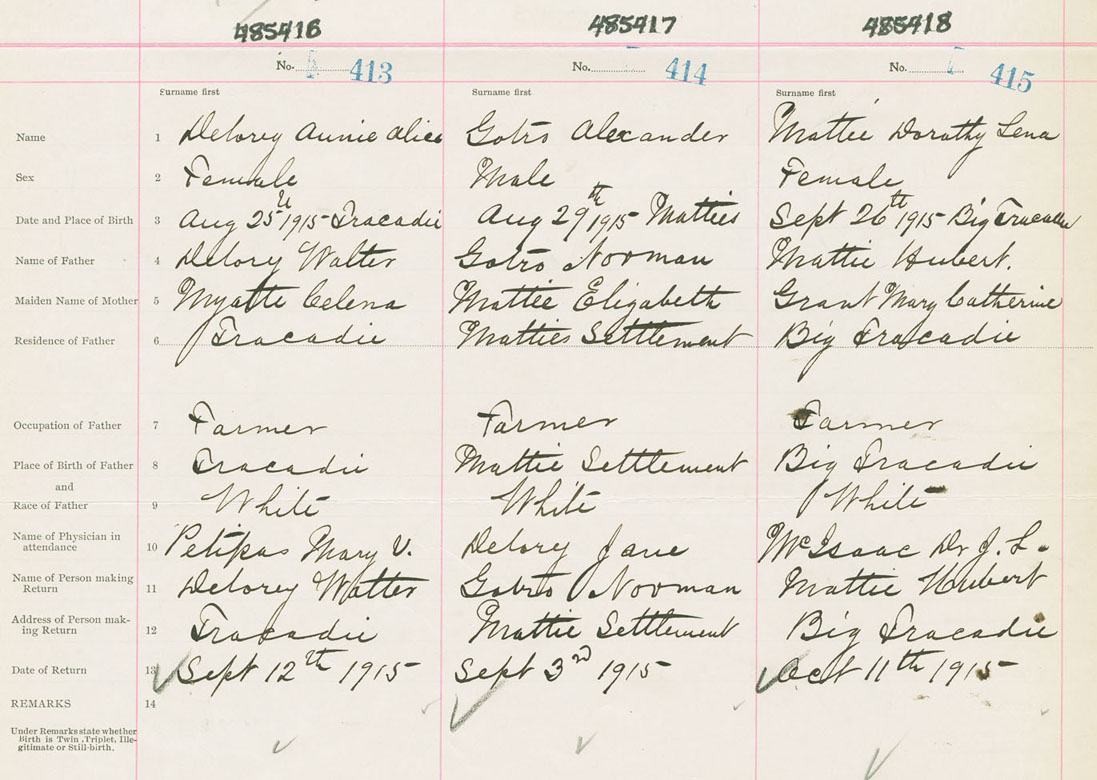 485416 485417 485418
No. 413 No. 414 No. 415
Surname first Surname first Surname first
Name 1 Delorey Annie Alice Gotro Alexander Mattie Dorathy Lena
Sex 2 Female Male Female
Date and Place of Birth 3 Aug 25th 1915 Tracadie Aug 29th 1915 Matties Sept 26th 1915 Big Tracadie
Name of Father 4 Delory Walter Gotro Norman Mattie Hubert.
Maiden Name of Mother 5 Myatte Celena Mattie Elizabeth Grant Mary Catherine
Residence of Father 6 Tracadie Matties Settlement Big Tracadie
Occupation of Father 7 Farmer Farmer Farmer
Place of Birth of Father 8 Tracadie Mattie Settlement Big Tracadie
and
Race of Father 9 White White White
Name of Physician in
attendance 10 Petipas Mary V. Delory Jane McIsaac Dr J. L.
Name of Person making
Return 11 Delorey Walter Gotro Norman Mattie Hubert
Address of Person mak-
ing Return 12 Tracadie Mattie Settlement Big Tracadie
Date of Return 13 Sept 12th 1915 Sept 3rd 1915 Oct 11th 1915
REMARKS 14
Under Remarks state whether
Birth is Twin, Triplet, Ille-
gitimate or Still-birth.